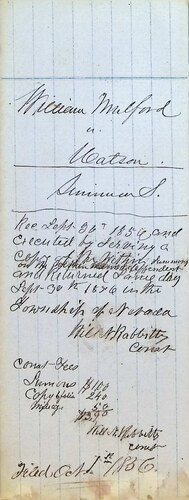 William Mulford
v.
Watson.
Summons S.
Rec. Sept 30th 1856, and
Executed by Serving a
Copy of the Within Summons
on the defendant
and Returned Same day
Sept 30th 1856 in the
Township of Nevada
Will H. Rabbitts
Const
Const Fees
Sumons $1.00
Copy 2.40
Milag 50
Will H. Rabbitts
Const
Filed Oct 1st 1856.